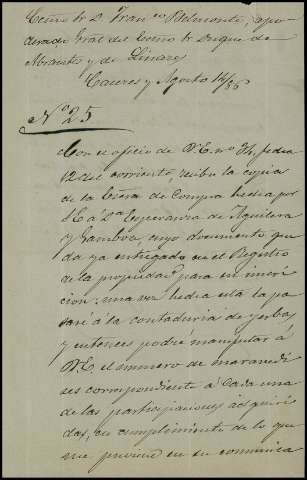 Excmo Sr D. Franco Belmonte, apo
derado Gral del Excmo Sr Duque de
Abrantes y de Linares
Caceres y Agosto 14/86
No 25
Con el oficio de V.E. no 74, fecha
12 del corriente, recibo la copia
de la Escra de Compra hecha por
S.E. a Da Esperanza de Aguilera
y Gamboa, cuyo documento que
da ya entregado en el Registro
de la propiedad para su inscrip
cion; una vez hecha esta la pa
saré á la contaduria de yerbas
y entonces podré manifestar á
V.E. el numero de maravedi
ses correspondiente á cada una
de las participaciones adquiri
das, en cumplimiento de lo que
me previene en su comunica